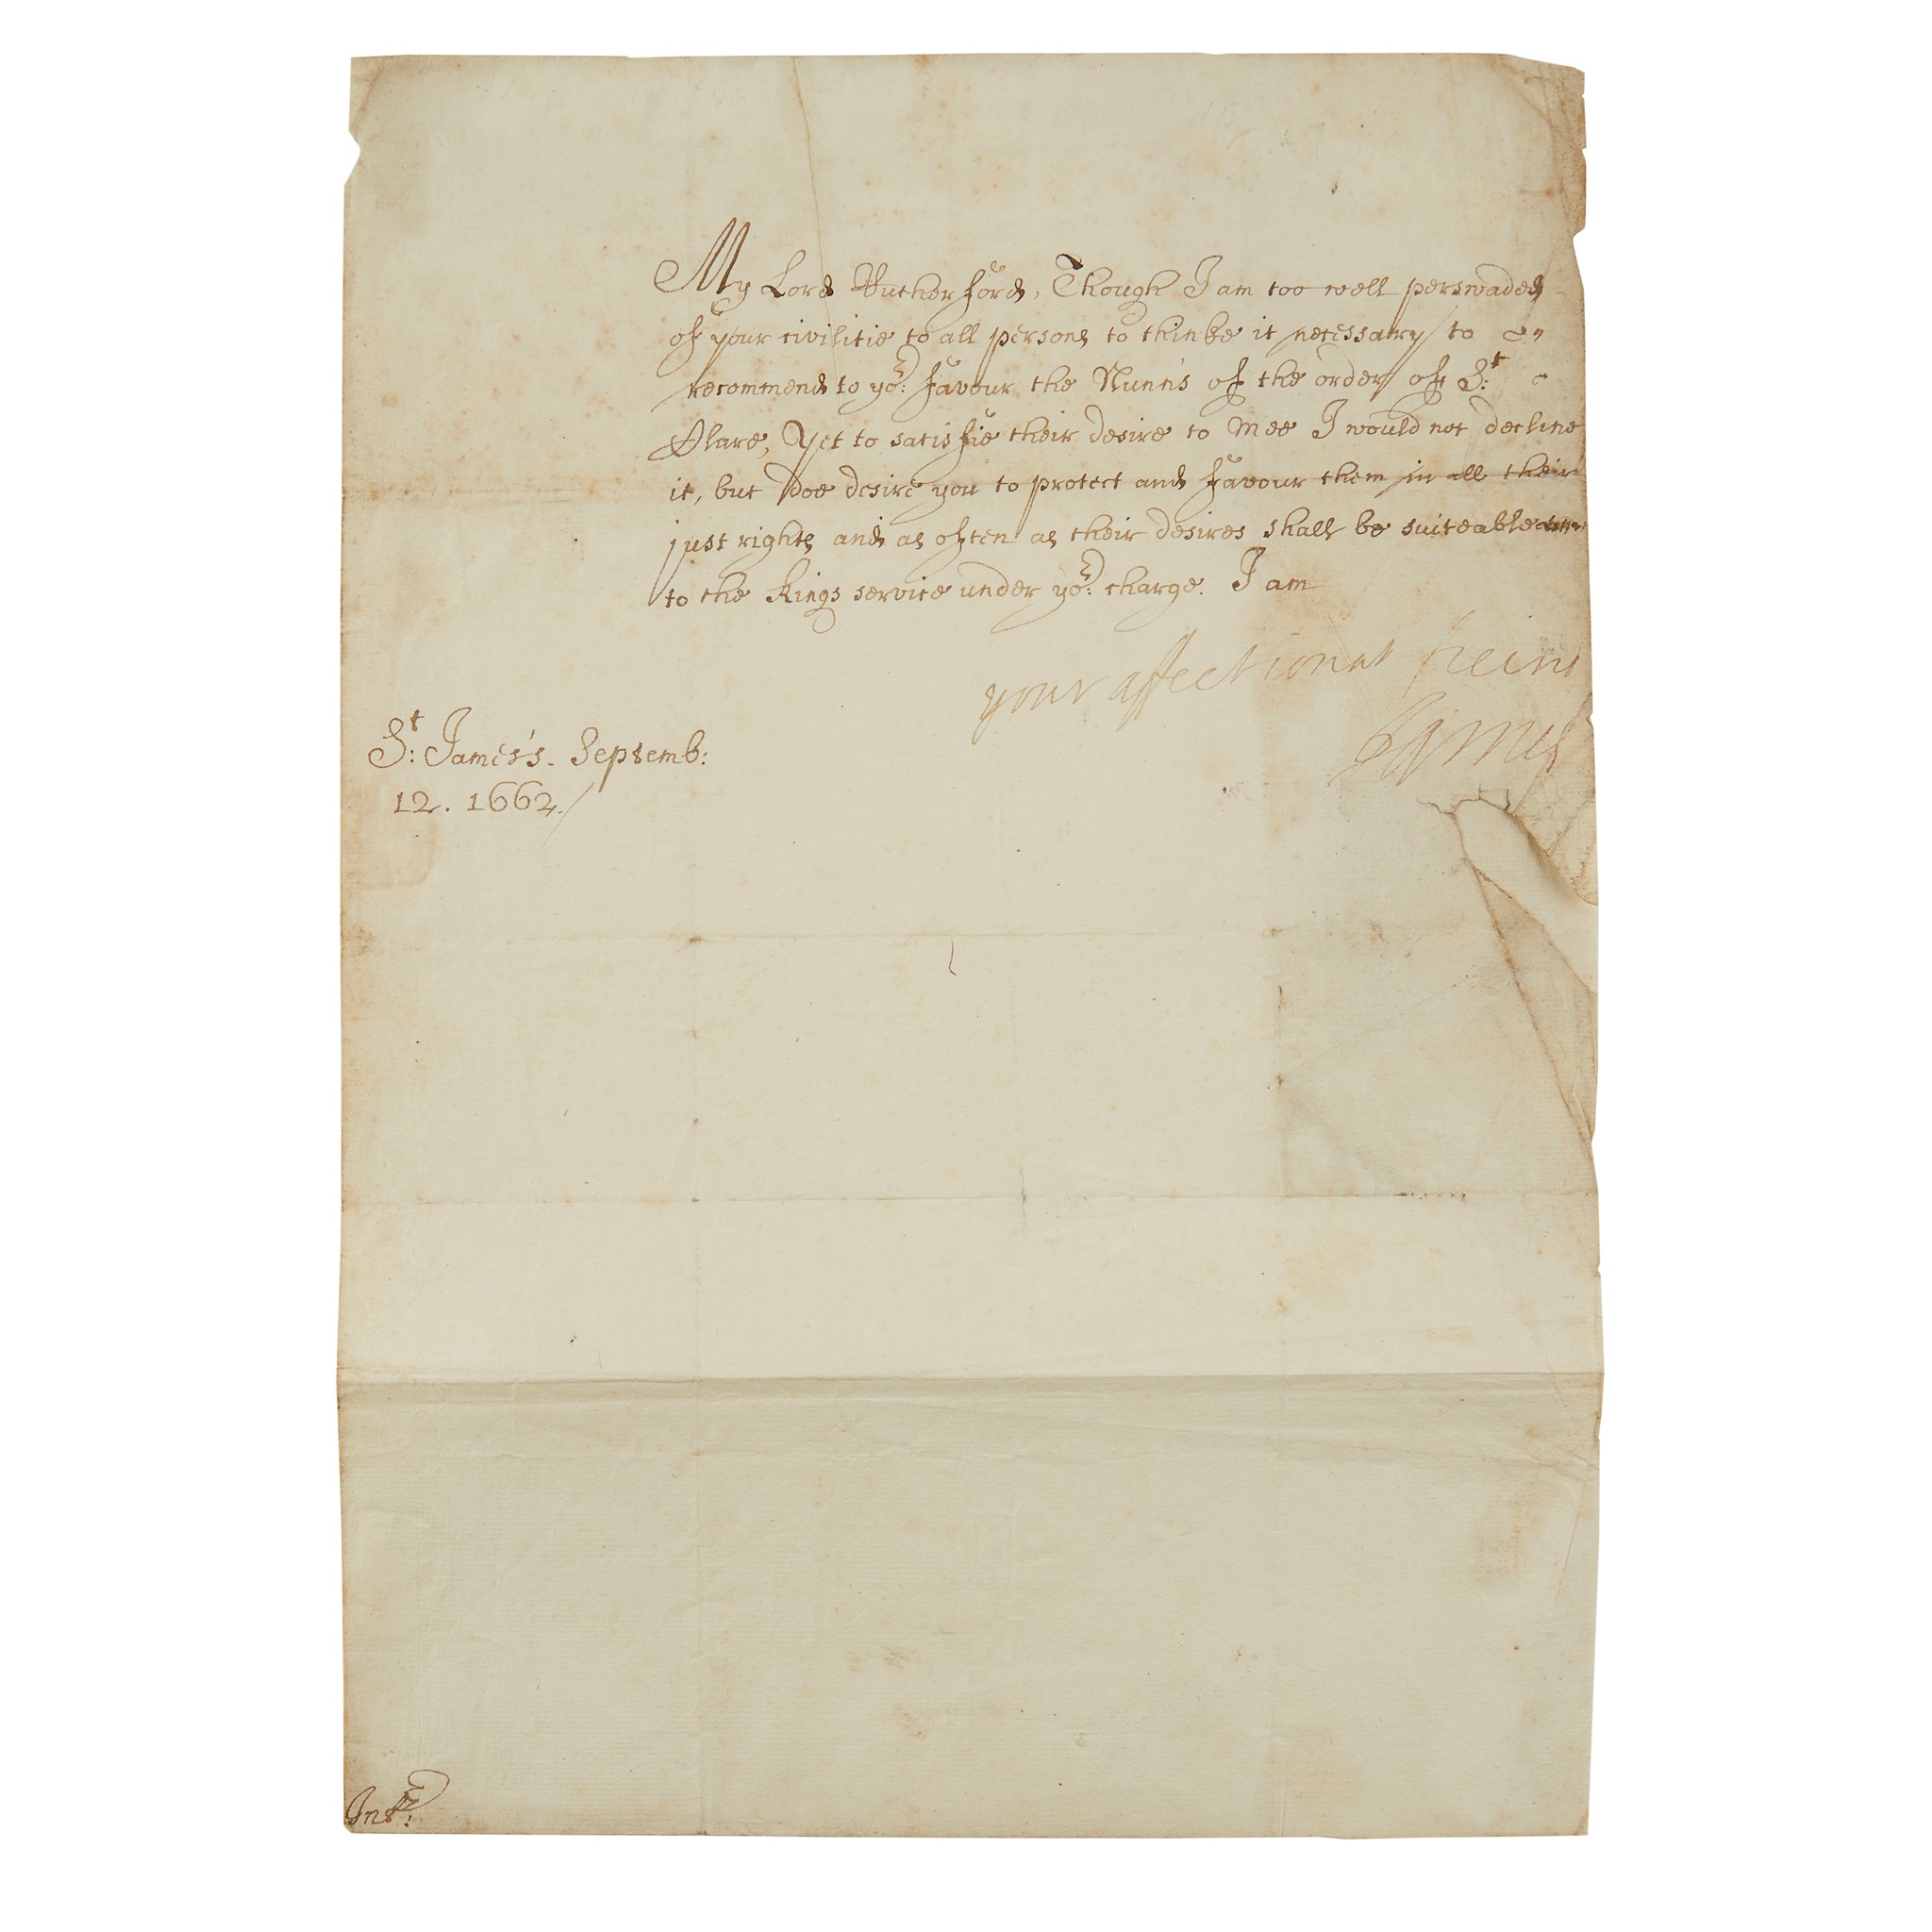 My Lord Rutherford, Though I am too well perswaded
of your civilitie to all persons to thinke it necessary to
recommend to yor: favour the Nunn's of the order of St:
Clare, Yet to satisfie their desire to mee I would not decline
it, but doe desire you to protect and favour them in all their
just rights and as often as their desires shall be suiteable
to the Kings service under yor: charge. I am
your affectionat freind
James
St: James's. Septemb:
12. 1662.